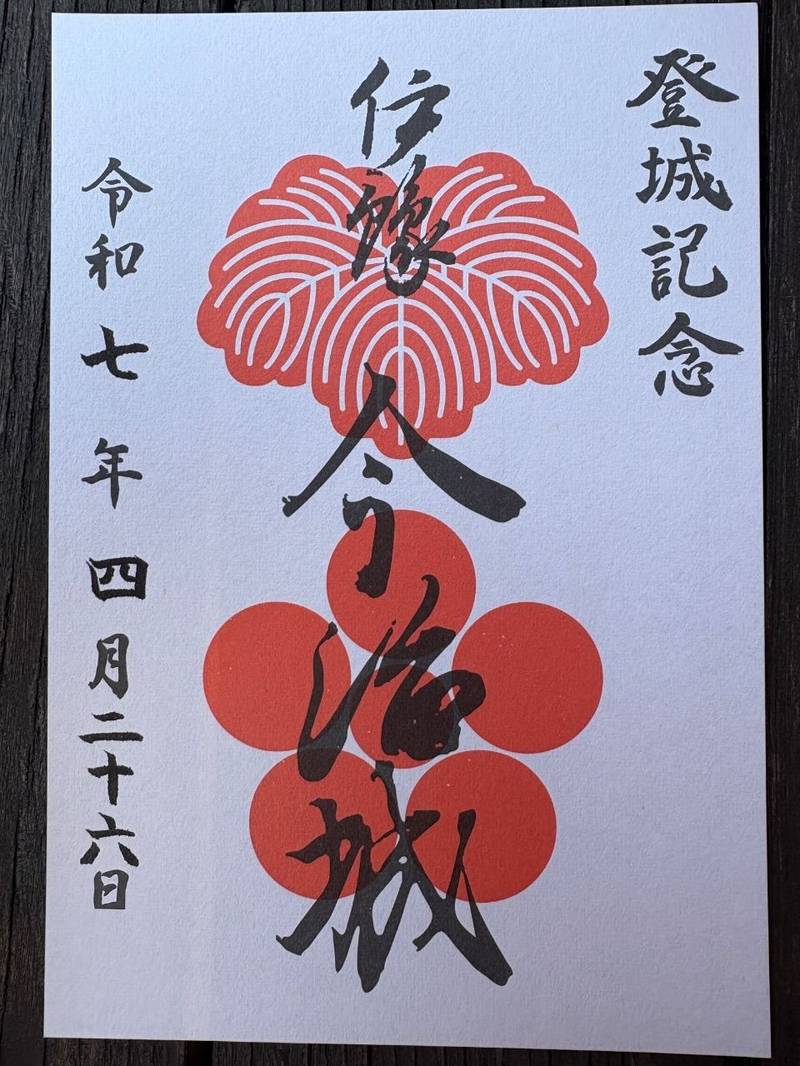 登城記念
伊豫
今治城
令和七年四月二十六日